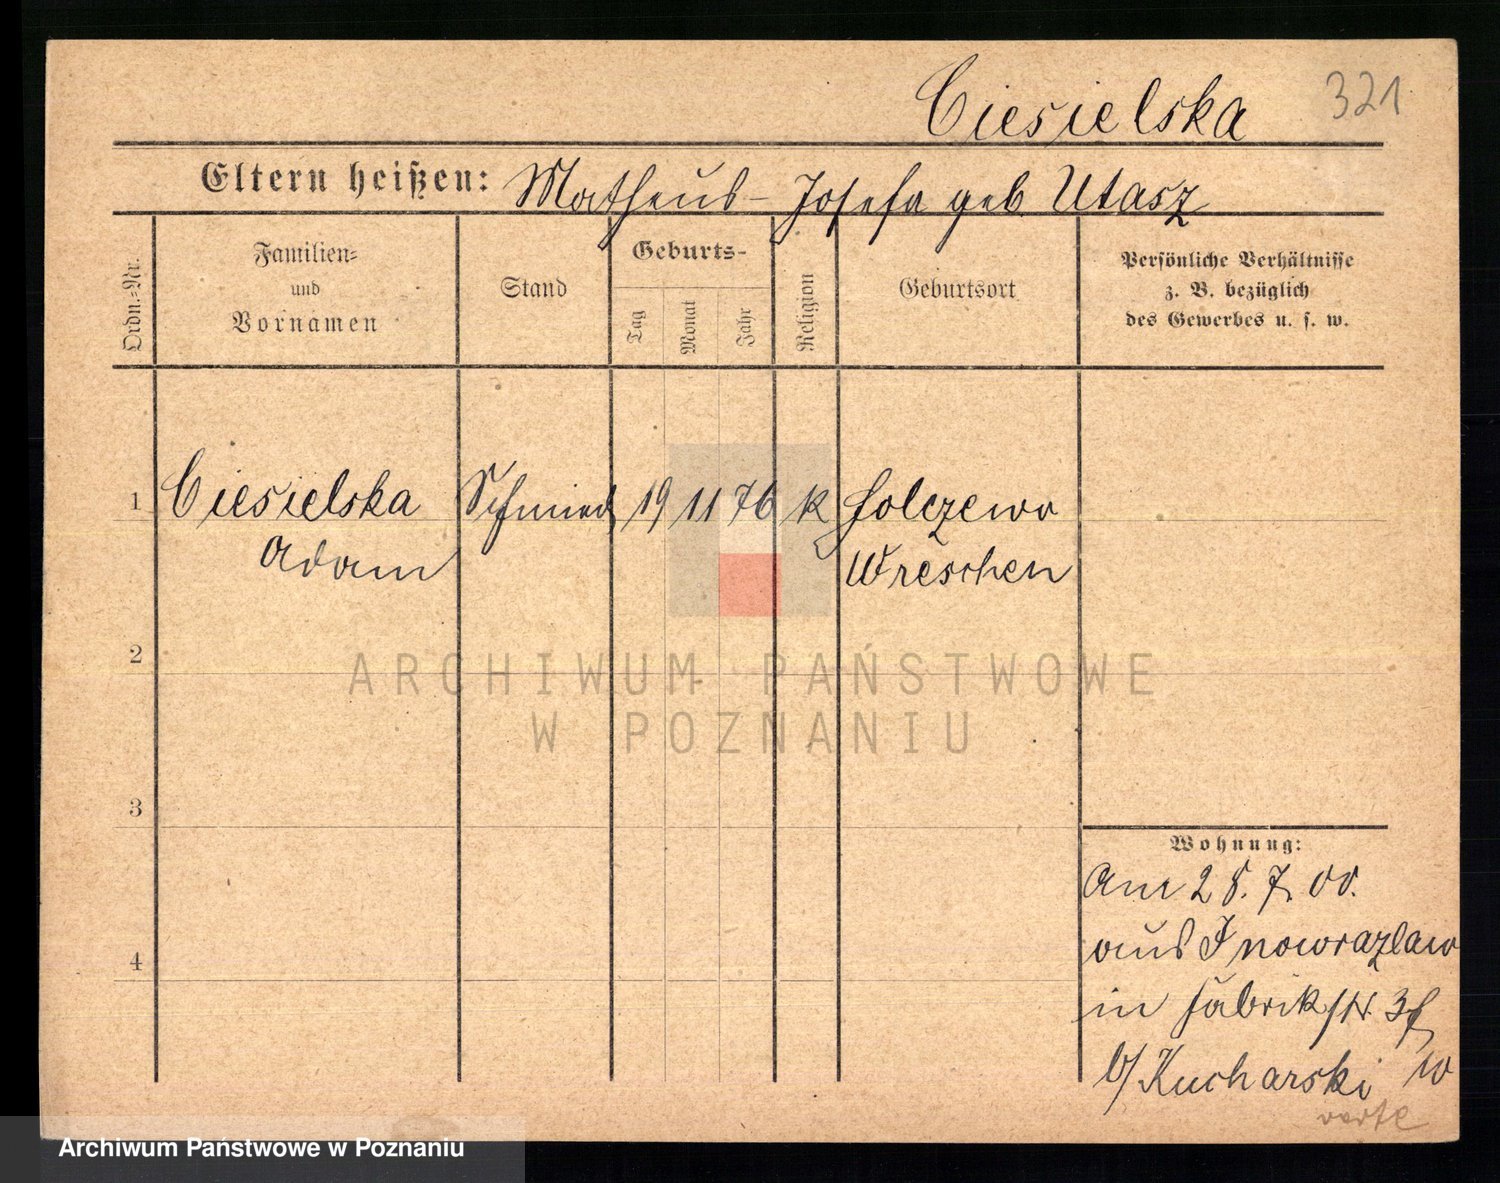 Ciesielska 321
Eltern heißen: Matheus - Josefa geb Utasz
Ordn.-Nr.
Familien-
und
Vornamen
Stand
Geburts-
Tag
Monat
Jahr
Religion
Geburtsort
Persönliche Verhältnisse
z. B. bezüglich
des Gewerbes u. s. w.
1 Ciesielska Schmied 19 11 76 k
Adam Wreschen
2
ARCHIWUM PAŃSTWOWE
W POZNANIU
3
Wohnung:
Am 28. 7. 00.
4
aus Inowrazlaw
in Fabrikstr.
b/ Kucharski
verte
Archiwum Państwowe w Poznaniu